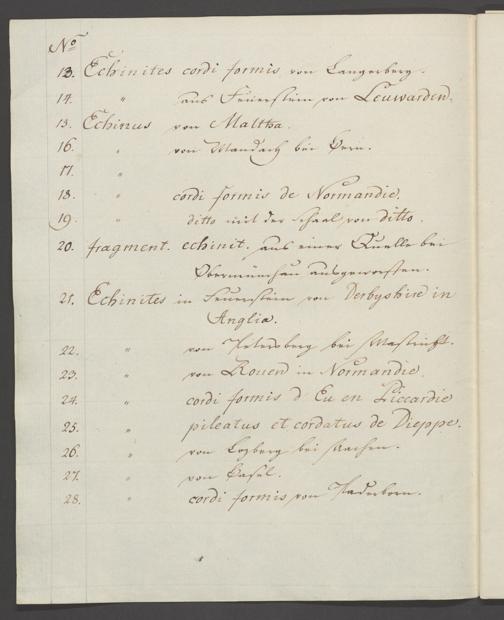 No
13. Echinites cordi formis von Langerberg.
14. " aus Feuerstein von Leuwarden.
15. Echinus von Maltha.
16. " von Mandach bei Bern.
17. "
18. cordi formis de Normandie.
19. " ditto mit der Schaal von ditto.
20. fragment. echinit. aus einer Quelle bei
Obermünchau ausgeworffen.
21. Echinites in Feuerstein von Derbyshire in
Anglia.
22. " von Petersberg bei Mastricht.
23. " von Rouen in Normandie.
24. " cordi formis d'Eu en Piccardie
25. " pileatus et cordatus de Dieppe.
26. " von Losberg bei Aachen.
27. " von Basel.
28. " cordi formis von Paderborn.